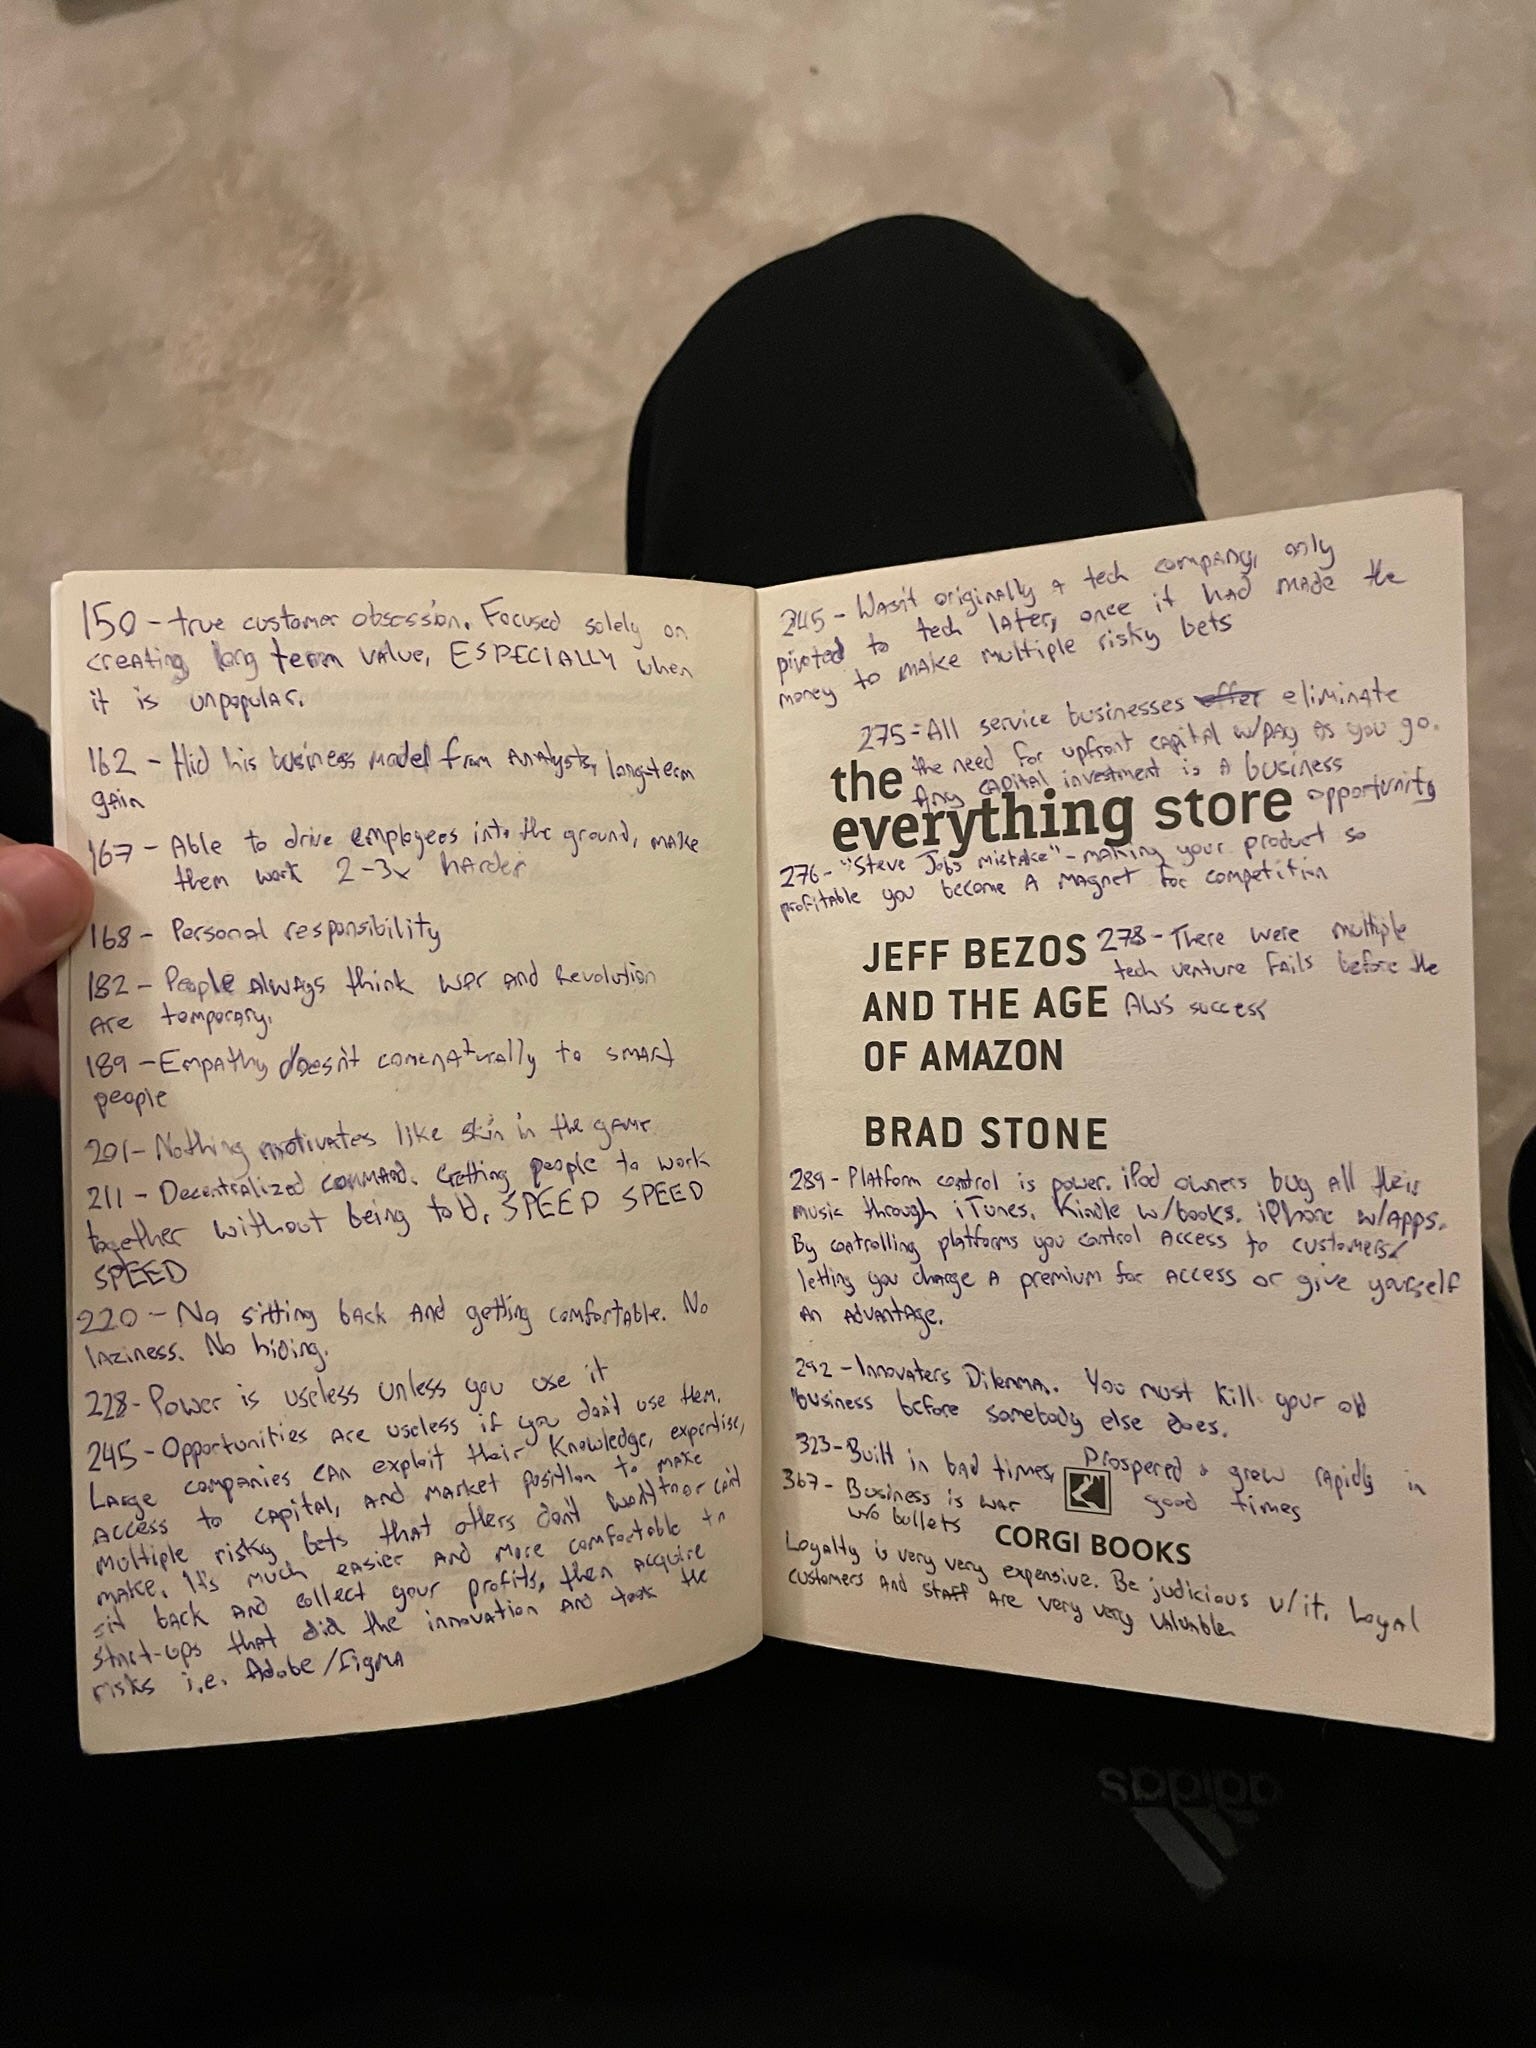 150 - true customer obsession. Focused solely on
creating long term value, ESPECIALLY when
it is unpopular.
162 - Hid his business model from Analysts, long-term
gain
167 - Able to drive employees into the ground, make
them work 2-3x harder
168 - Personal responsibility
182 - People Always think war and Revolution
are temporary.
189 - Empathy doesn't come naturally to smart
people
201 - Nothing motivates like skin in the game
211 - Decentralized command. Getting people to work
together without being told. SPEED SPEED
SPEED
220 - No sitting back and getting comfortable. No
laziness. No hiding.
228 - Power is useless unless you use it
245 - Opportunities are useless if you don't use them.
Large companies can exploit their knowledge, expertise,
access to capital, and market position to make
multiple risky bets that others don't want to or can't
make. It's much easier and more comfortable to
sit back and collect your profits, then acquire
start-ups that did the innovation and took the
risks i.e. Adobe/Figma
245 - Wasn't originally a tech company, only
pivoted to tech later, once it had made the
money to make multiple risky bets
275 - All service businesses eliminate
the need for upfront capital w/pay as you go.
Any capital investment is a business
opportunity
the
everything store
276 - "Steve Jobs mistake" - making your product so
profitable you become a magnet for competition
JEFF BEZOS
AND THE AGE
OF AMAZON
278 - There were multiple
tech venture fails before the
AWS success
BRAD STONE
289 - Platform control is power. iPod owners buy all their
music through iTunes. Kindle w/books. iPhone w/apps.
By controlling platforms you control access to customers
letting you charge a premium for access or give yourself
an advantage.
292 - Innovaters Dilemma. You must kill your old
business before somebody else does.
323 - Built in bad times, Prospered & grew rapidly in
good times
367 - Business is war
w/o bullets
CORGI BOOKS
Loyalty is very very expensive. Be judicious w/it. Loyal
customers and staff are very very valuable.
adidas